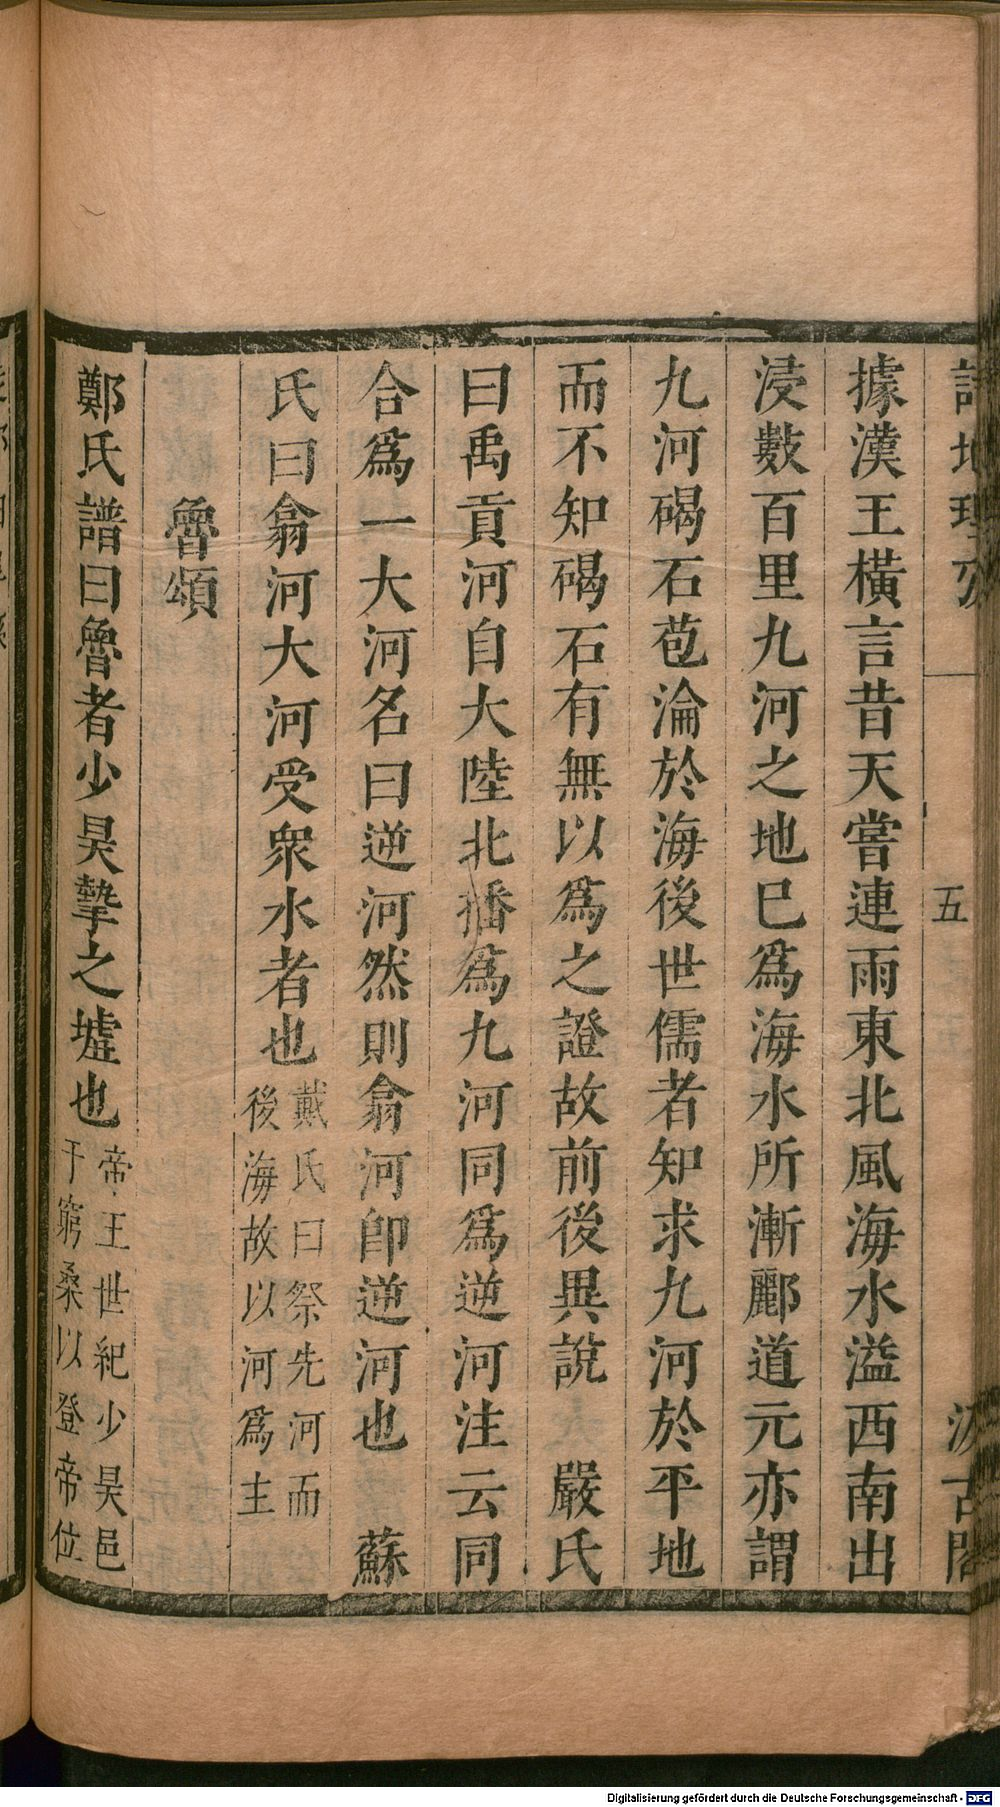 詩地理攷
五
汲古閣
據漢王橫言昔天嘗連雨東北風海水溢西南出
浸數百里九河之地已爲海水所漸酈道元亦謂
九河碣石苞淪於海後世儒者知求九河於平地
而不知碣石有無以爲之證故前後異說　嚴氏
曰禹貢河自大陸北播爲九河同爲逆河注云同
合爲一大河名曰逆河然則翕河卽逆河也　蘇
氏曰翕河大河受衆水者也
戴氏曰祭先河而
後海故以河爲主
魯頌
鄭氏譜曰魯者少昊摯之墟也
帝王世紀少昊邑
于窮桑以登帝位
Digitalisierung gefördert durch die Deutsche Forschungsgemeinschaft - DFG